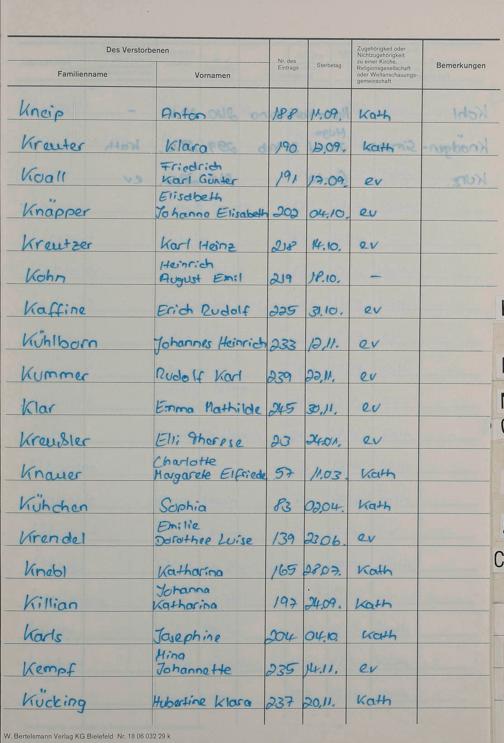 Des Verstorbenen
Familienname Vornamen Nr. des Eintrags Sterbetag Zugehörigkeit oder Nichtzugehörigkeit zu einer Kirche, Religionsgesellschaft oder Weltanschauungsgemeinschaft Bemerkungen
Kneip Anton 188 11.09. Kath
Kreuter Klara 190 12.09. Kath
Koall Friedrich
Karl Günter 191 17.09. ev
Knäpper Elisabeth
Johanna Elisabeth 202 04.10. ev
Kreutzer Karl Heinz 218 14.10. ev
Kohn Heinrich
August Emil 219 18.10. –
Kaffine Erich Rudolf 225 31.10. ev
Kühlborn Johannes Heinrich 233 12.11. ev
Kummer Rudolf Karl 239 22.11. ev
Klar Emma Mathilde 245 30.11. ev
Kreußler Elli Therese 23 24.01. ev
Knauer Charlotte
Margarete Elfriede 57 11.03. Kath
Kühchen Sophia 83 02.04. Kath
Krendel Emilie
Dorothee Luise 139 23.06. ev
Knebl Katharina 165 28.07. Kath
Killian Johanna
Katharina 197 24.09. Kath
Karls Josephine 204 04.10. Kath
Kempf Mina
Johannette 235 14.11. ev
Kücking Hubertine Klara 237 20.11. Kath
W. Bertelsmann Verlag KG Bielefeld Nr. 18 06 032 29 k